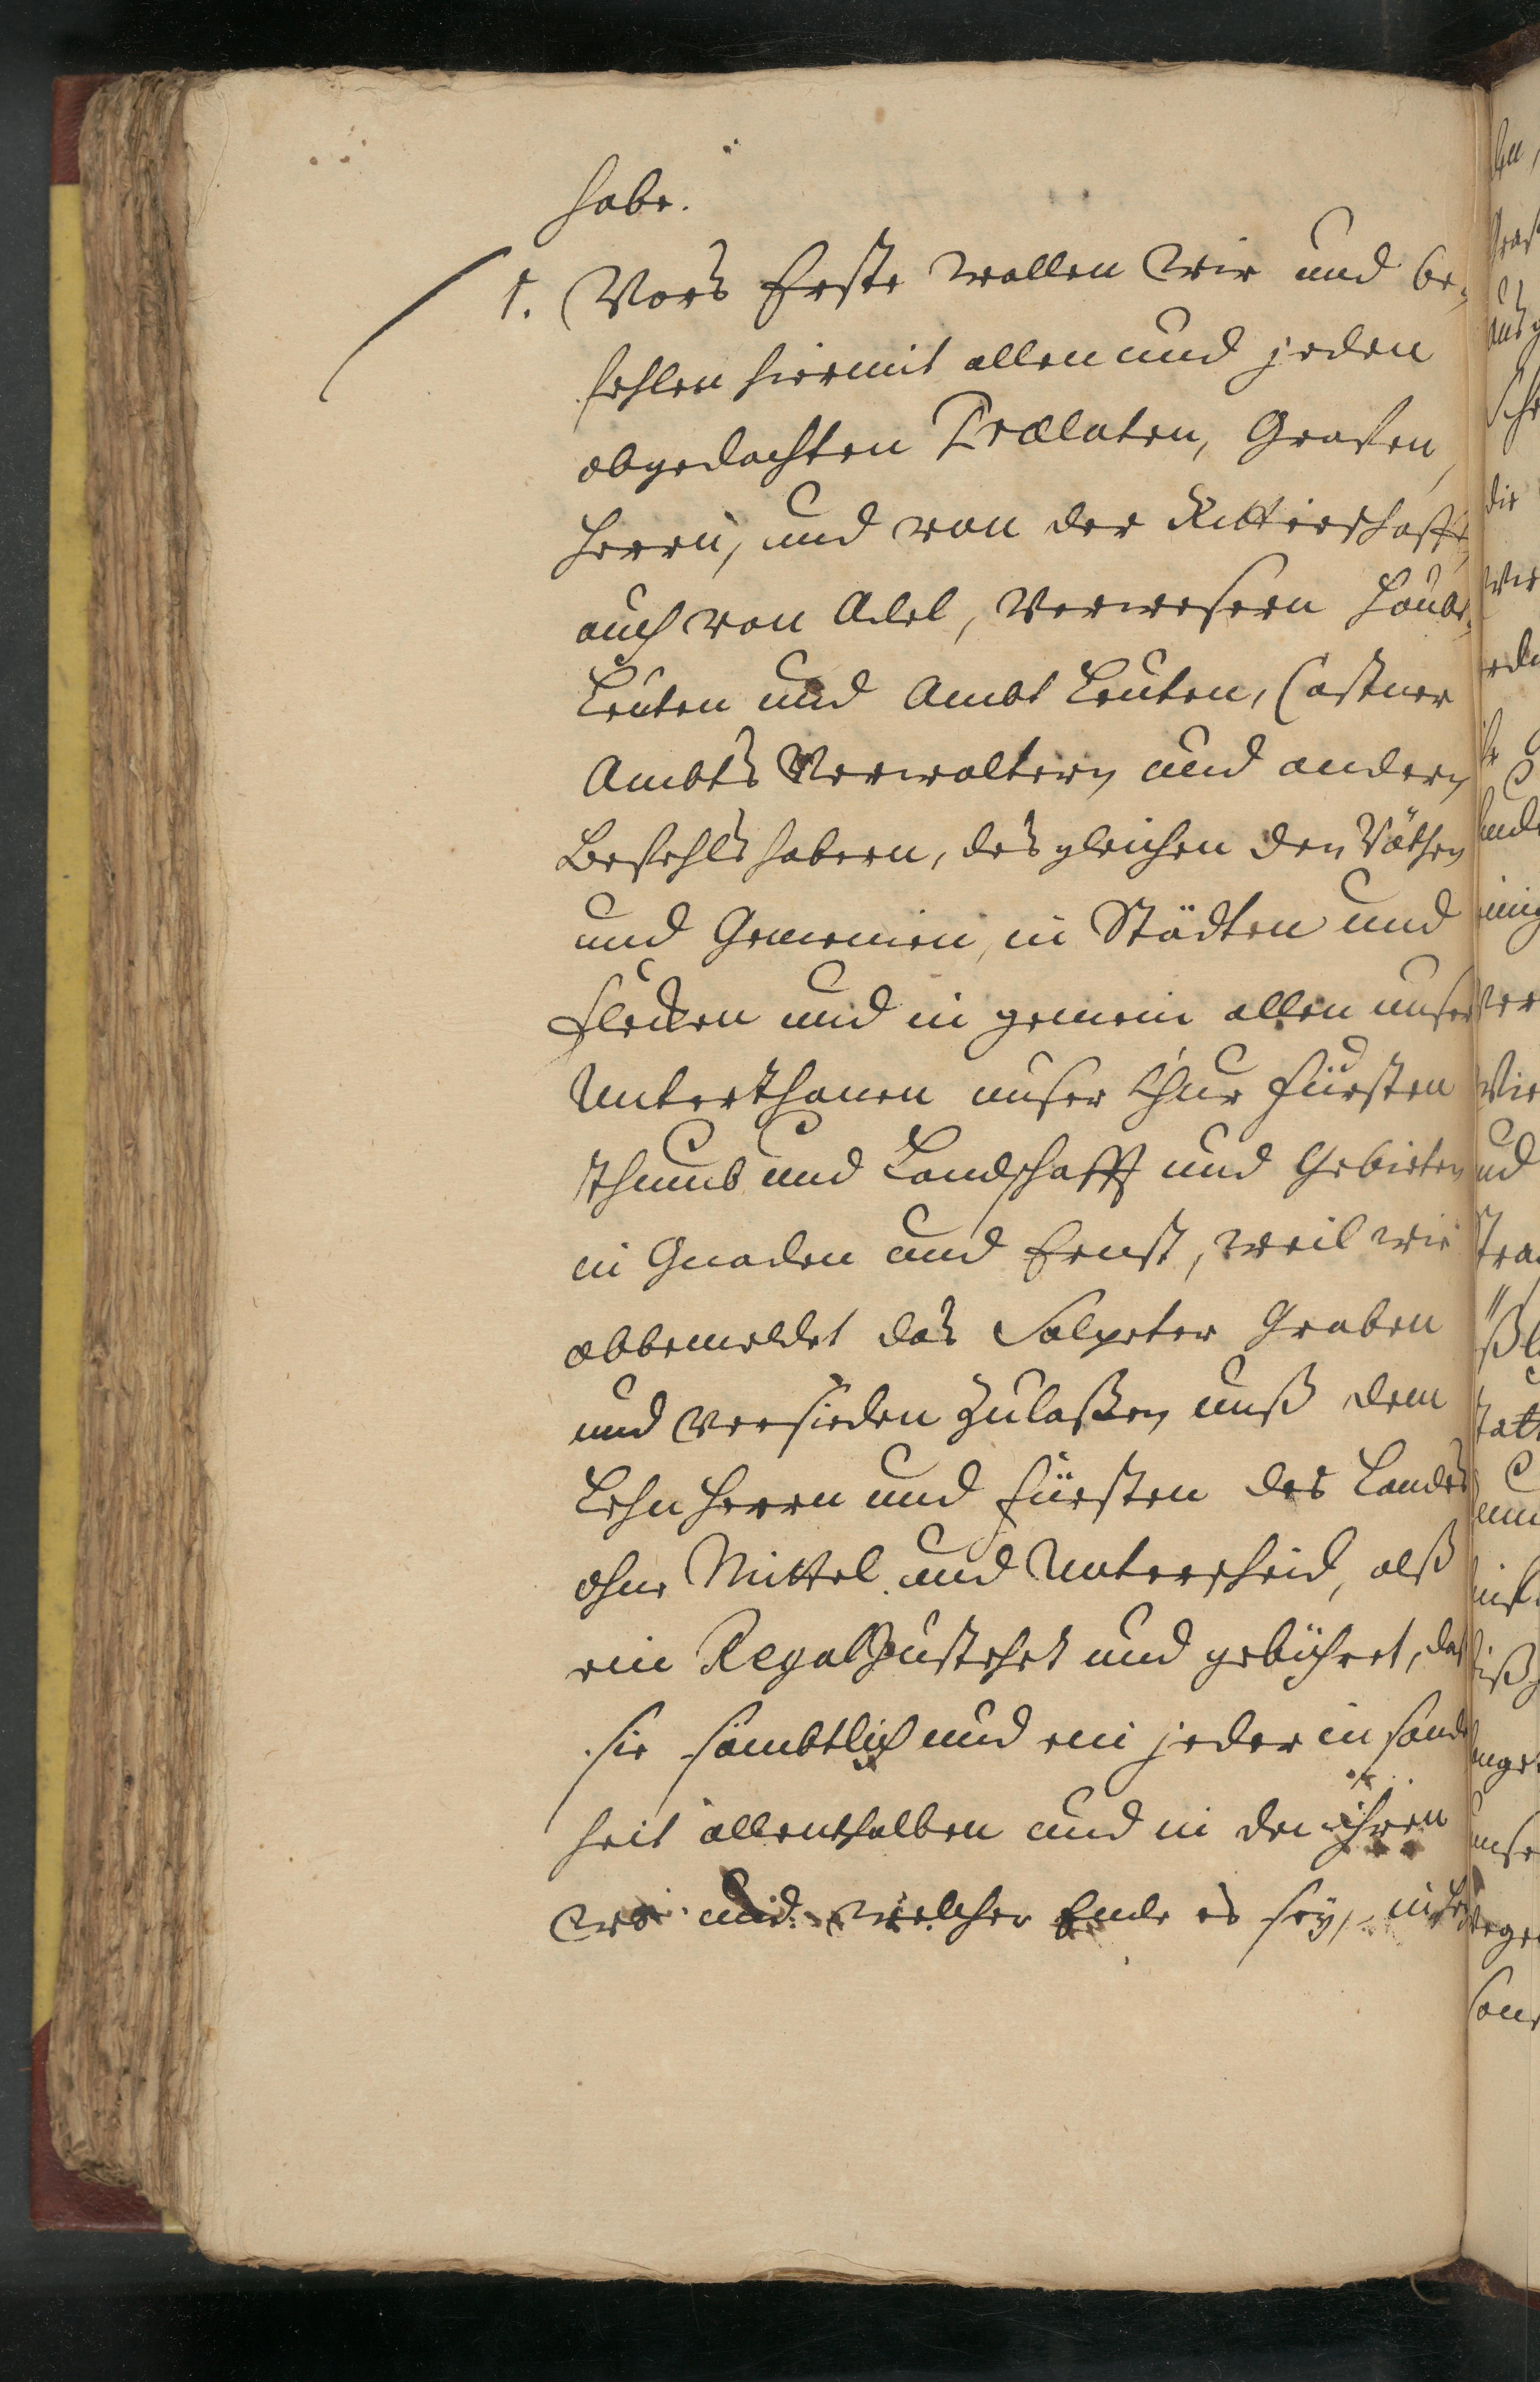 habe.
1. Vors Erste wollen Wir und be,
fehlen hiermit allen und jeden
obgedachten Prælaten, Grafen,
Herrn, und von der Ritterschafft,
auch von Adel, Verwesern Haubt,
Leuten und Ambt Leuten, Castner
Ambts Verwaltern und andern
Befehlshabern, desgleichen den Räthen
und Gemeinen, in Städten und
Flecken und in gemein allen unser
Unterthanen unser Chur Fürsten
thumb und Landschafft und Gebieten
in Gnaden und Ernst, weil wie
obbemeldet das Salpeter Graben
und versieden zulaßen, unß dem
Lehn Herrn und Fürsten des Landes
ohne Mittel und Unterscheid, alß
ein Regal zustehet und gebühret, das
sie sämbtlich und ein jeder in sonder
heit allenthalben und in den ihren
wo und welcher Ende es sey,